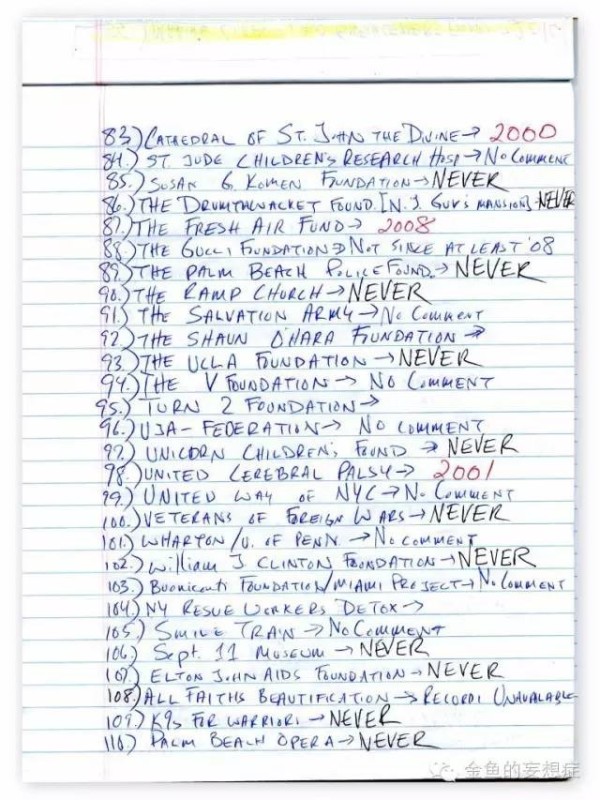 83.) CATHEDRAL OF ST. JOHN THE DIVINE → 2000
84.) ST. JUDE CHILDREN'S RESEARCH HOSP → NO COMMENT
85.) SUSAN G. KOMEN FOUNDATION → NEVER
86.) THE DRUMTHWACKET FOUND. [N.J. GUV'S MANSION] - NEVER
87.) THE FRESH AIR FUND → 2008
88.) THE GUCCI FOUNDATION → NOT SINCE AT LEAST '08
89.) THE PALM BEACH POLICE FOUND. → NEVER
90.) THE RAMP CHURCH → NEVER
91.) THE SALVATION ARMY → NO COMMENT
92.) THE SHAUN O'HARA FOUNDATION →
93.) THE UCLA FOUNDATION → NEVER
94.) THE V FOUNDATION → NO COMMENT
95.) TURN 2 FOUNDATION →
96.) UJA - FEDERATION → NO COMMENT
97.) UNICORN CHILDREN'S FOUND → NEVER
98.) UNITED CEREBRAL PALSY → 2001
99.) UNITED WAY OF NYC → NO COMMENT
100.) VETERANS OF FOREIGN WARS → NEVER
101.) WHARTON/U. OF PENN. → NO COMMENT
102.) William J CLINTON FOUNDATION → NEVER
103.) BUONICONTI FOUNDATION/MIAMI PROJECT → NO COMMENT
104.) NY RESUE WORKERS DETOX →
105.) SMILE TRAIN → NO COMMENT
106.) Sept. 11 MUSEUM → NEVER
107.) ELTON JOHN AIDS FOUNDATION → NEVER
108.) ALL FAITHS BEAUTIFICATION → RECORDS UNAVALABLE
109.) K9S FOR WARRIORS → NEVER
110.) PALM BEACH OPERA → NEVER
金鱼的妄想症